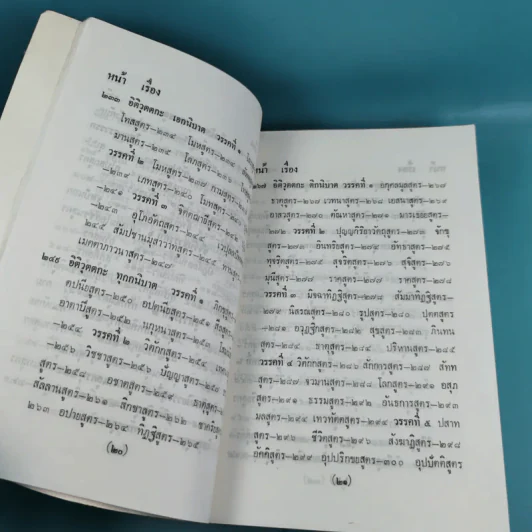 หน้า เรื่อง
๒๓๓ อิติวุตตกะ เอกนิบาต วรรคที่ ๑
โทสสูตร—๒๓๔ โมหสูตร—๒๓๔
มานสูตร—๒๓๕ โลภสูตร—๒๓๖
วรรคที่ ๒ โมหสูตร—๒๓๗ กามสูตร
—๒๓๙ เภทสูตร—๒๔๐ โมทสูตร
—๒๔๑ วรรคที่ ๓ จิตตฌายีสูตร
อุโภอัตถสูตร—๒๔๔
๒๔๕ สัมปชานมุสาวาทสูตร
เมตตาภาวนาสูตร—๒๔๗
๒๔๙ อิติวุตตกะ ทุกกนิบาต วรรคที่ ๑
ตปนียสูตร—๒๕๐ อปตนียสูตร—๒๕๑
อาตาปีสูตร—๒๕๑ นกุหนาสูตร—๒๕๓
—๒๕๔ วรรคที่ ๒ วิตักกสูตร—๒๕๔
—๒๕๖ วิชชาสูตร—๒๕๖ ปัญญาสูตร—๒๕๗
สูตร—๒๕๘ อชาตสูตร—๒๕๙
สัลลานสูตร—๒๖๑ สิกขาสูตร—๒๖๒
๒๖๓ อปายสูตร—๒๖๔ ทิฏฐิสูตร—๒๖๕
(๒๐)
หน้า เรื่อง
๒๖๗ อิติวุตตกะ ติกนิบาต วรรคที่ ๑ อกุศลมูลสูตร—๒๖๗
ธาตุสูตร—๒๖๘ เวทนาสูตร—๒๖๘ เอสนาสูตร—๒๖๙
อาสวสูตร—๒๗๑ ตัณหาสูตร—๒๗๑ มารเธยยสูตร—
๒๗๒ วรรคที่ ๒ ปุญญกิริยาวัตถุสูตร—๒๗๔ จักขุ
สูตร—๒๗๕ อินทรียสูตร—๒๗๕ อัทธาสูตร—๒๗๕
ทุจริตสูตร—๒๗๖ สุจริตสูตร—๒๗๖ สุจิสูตร—๒๗๖
มุนีสูตร—๒๗๗ ราคสูตร—๒๗๗ ราคสูตร—๒๗๘
วรรคที่ ๓ มิจฉาทิฏฐิสูตร—๒๗๙ สัมมาทิฏฐิสูตร—
๒๘๐ นิสสรณสูตร—๒๘๑ รูปสูตร—๒๘๒ ปุตตสูตร
—๒๘๒ อวุฏฐิกสูตร—๒๘๓ สุขสูตร—๒๘๔ ภินทน
สูตร—๒๘๕ ธาตุสูตร—๒๘๕ ปริหานสูตร—๒๘๕
วรรคที่ ๔ วิตักกสูตร—๒๘๗ สักการสูตร—๒๘๗ สัทท
สูตร—๒๘๘ จวมานสูตร—๒๘๙ โลกสูตร—๒๙๑ อสุภ
สูตร—๒๙๒ ธรรมสูตร—๒๙๒ อันธการสูตร—๒๙๓
มลสูตร—๒๙๔ เทวทัตตสูตร—๒๙๔ วรรคที่ ๕ ปสาท
สูตร—๒๙๖ ชีวิตสูตร—๒๙๖ สังฆาฏิสูตร—๒๙๘
อัคคิสูตร—๒๙๙ อุปปริกขยสูตร—๓๐๐ อุปบัตติสูตร
(๒๑)